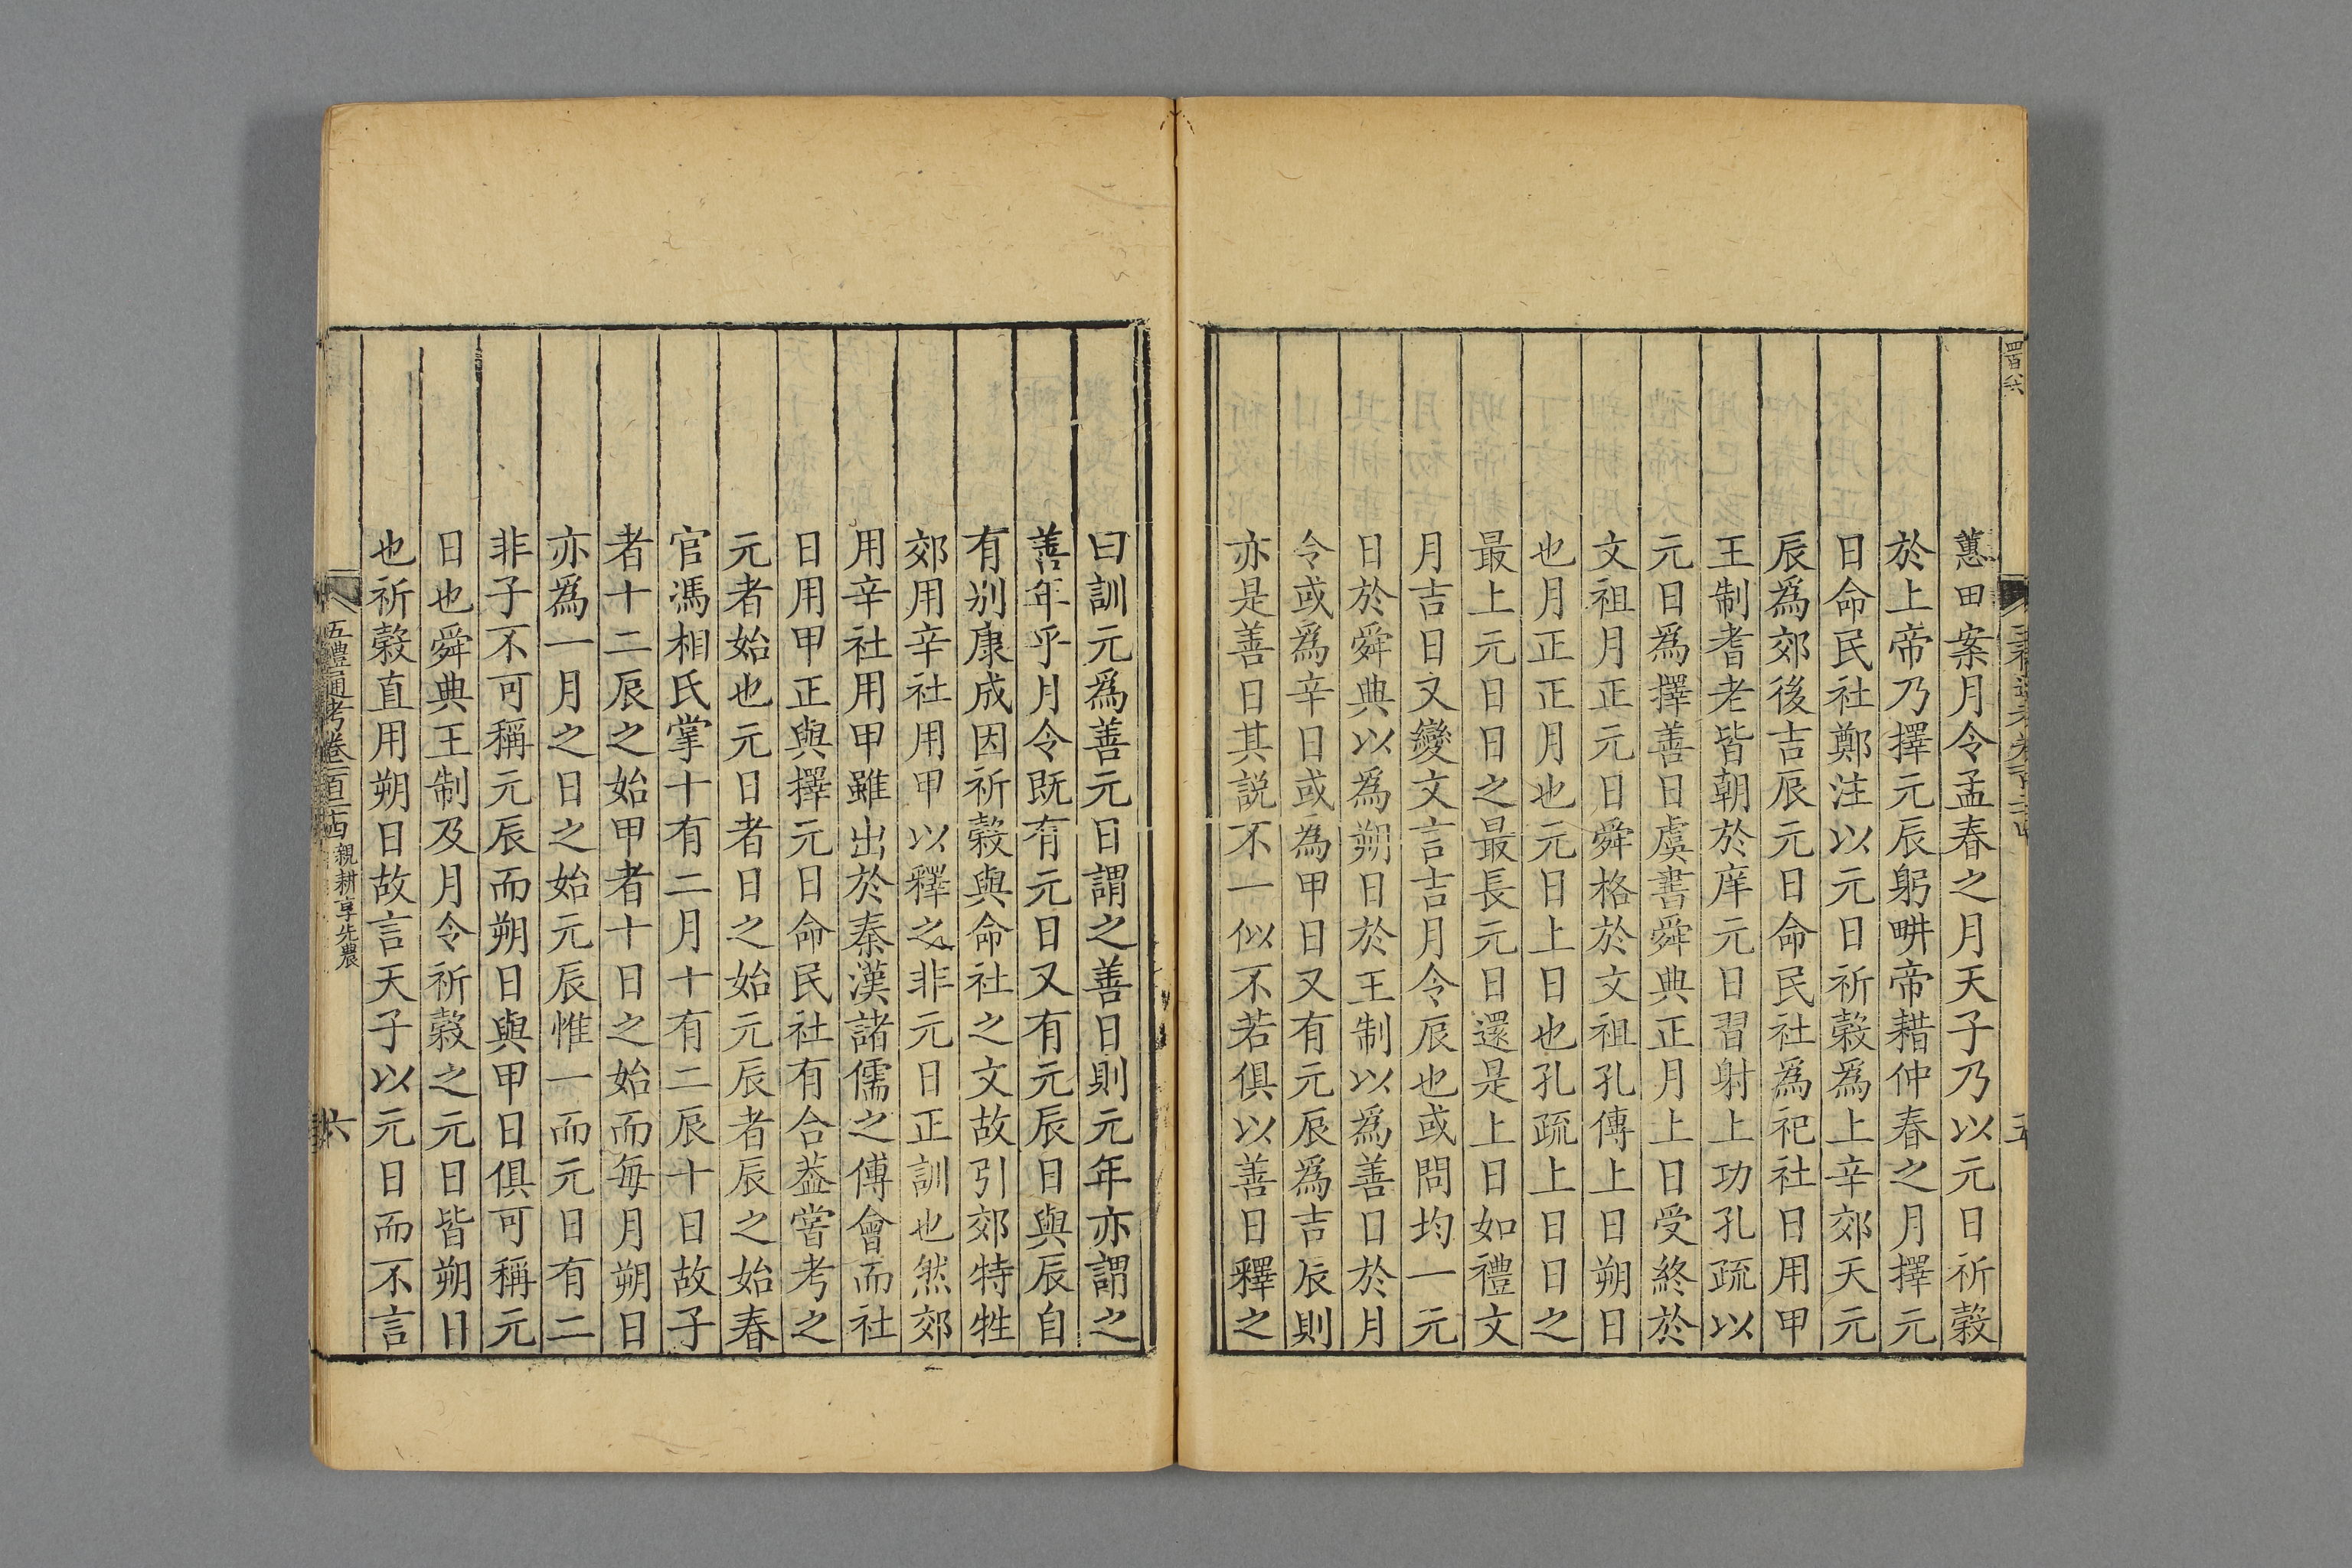 蕙田案月令孟春之月天子乃以元日祈榖
於上帝乃擇元辰躬畊帝耤仲春之月擇元
日命民社鄭注以元日祈榖爲上辛郊天元
辰爲郊後吉辰元日命民社爲祀社日用甲
王制耆老皆朝於庠元日習射上功孔疏以
元日爲擇善日虞書舜典正月上日受終於
文祖月正元日舜格於文祖孔傳上日朔日
也月正正月也元日上日也孔疏上日日之
最上元日日之最長元日還是上日如禮文
月吉日又變文言吉月令辰也或問均一元
日於舜典以爲朔日於王制以爲善日於月
令或爲辛日或爲甲日又有元辰爲吉辰則
亦是善日其説不一似不若俱以善日釋之
曰訓元爲善元日謂之善日則元年亦謂之
善年乎月令既有元日又有元辰日與辰自
有别康成因祈榖與命社之文故引郊特牲
郊用辛社用甲以釋之非元日正訓也然郊
用辛社用甲雖出於秦漢諸儒之傅會而社
日用甲正與擇元日命民社有合葢嘗考之
元者始也元日者日之始元辰者辰之始春
官馮相氏掌十有二月十有二辰十日故子
者十二辰之始甲者十日之始而每月朔日
亦爲一月之日之始元辰惟一而元日有二
非子不可稱元辰而朔日與甲日俱可稱元
日也舜典王制及月令祈榖之元日皆朔日
也祈榖直用朔日故言天子以元日而不言
五禮通考卷一百二十四 親耕享先農
六